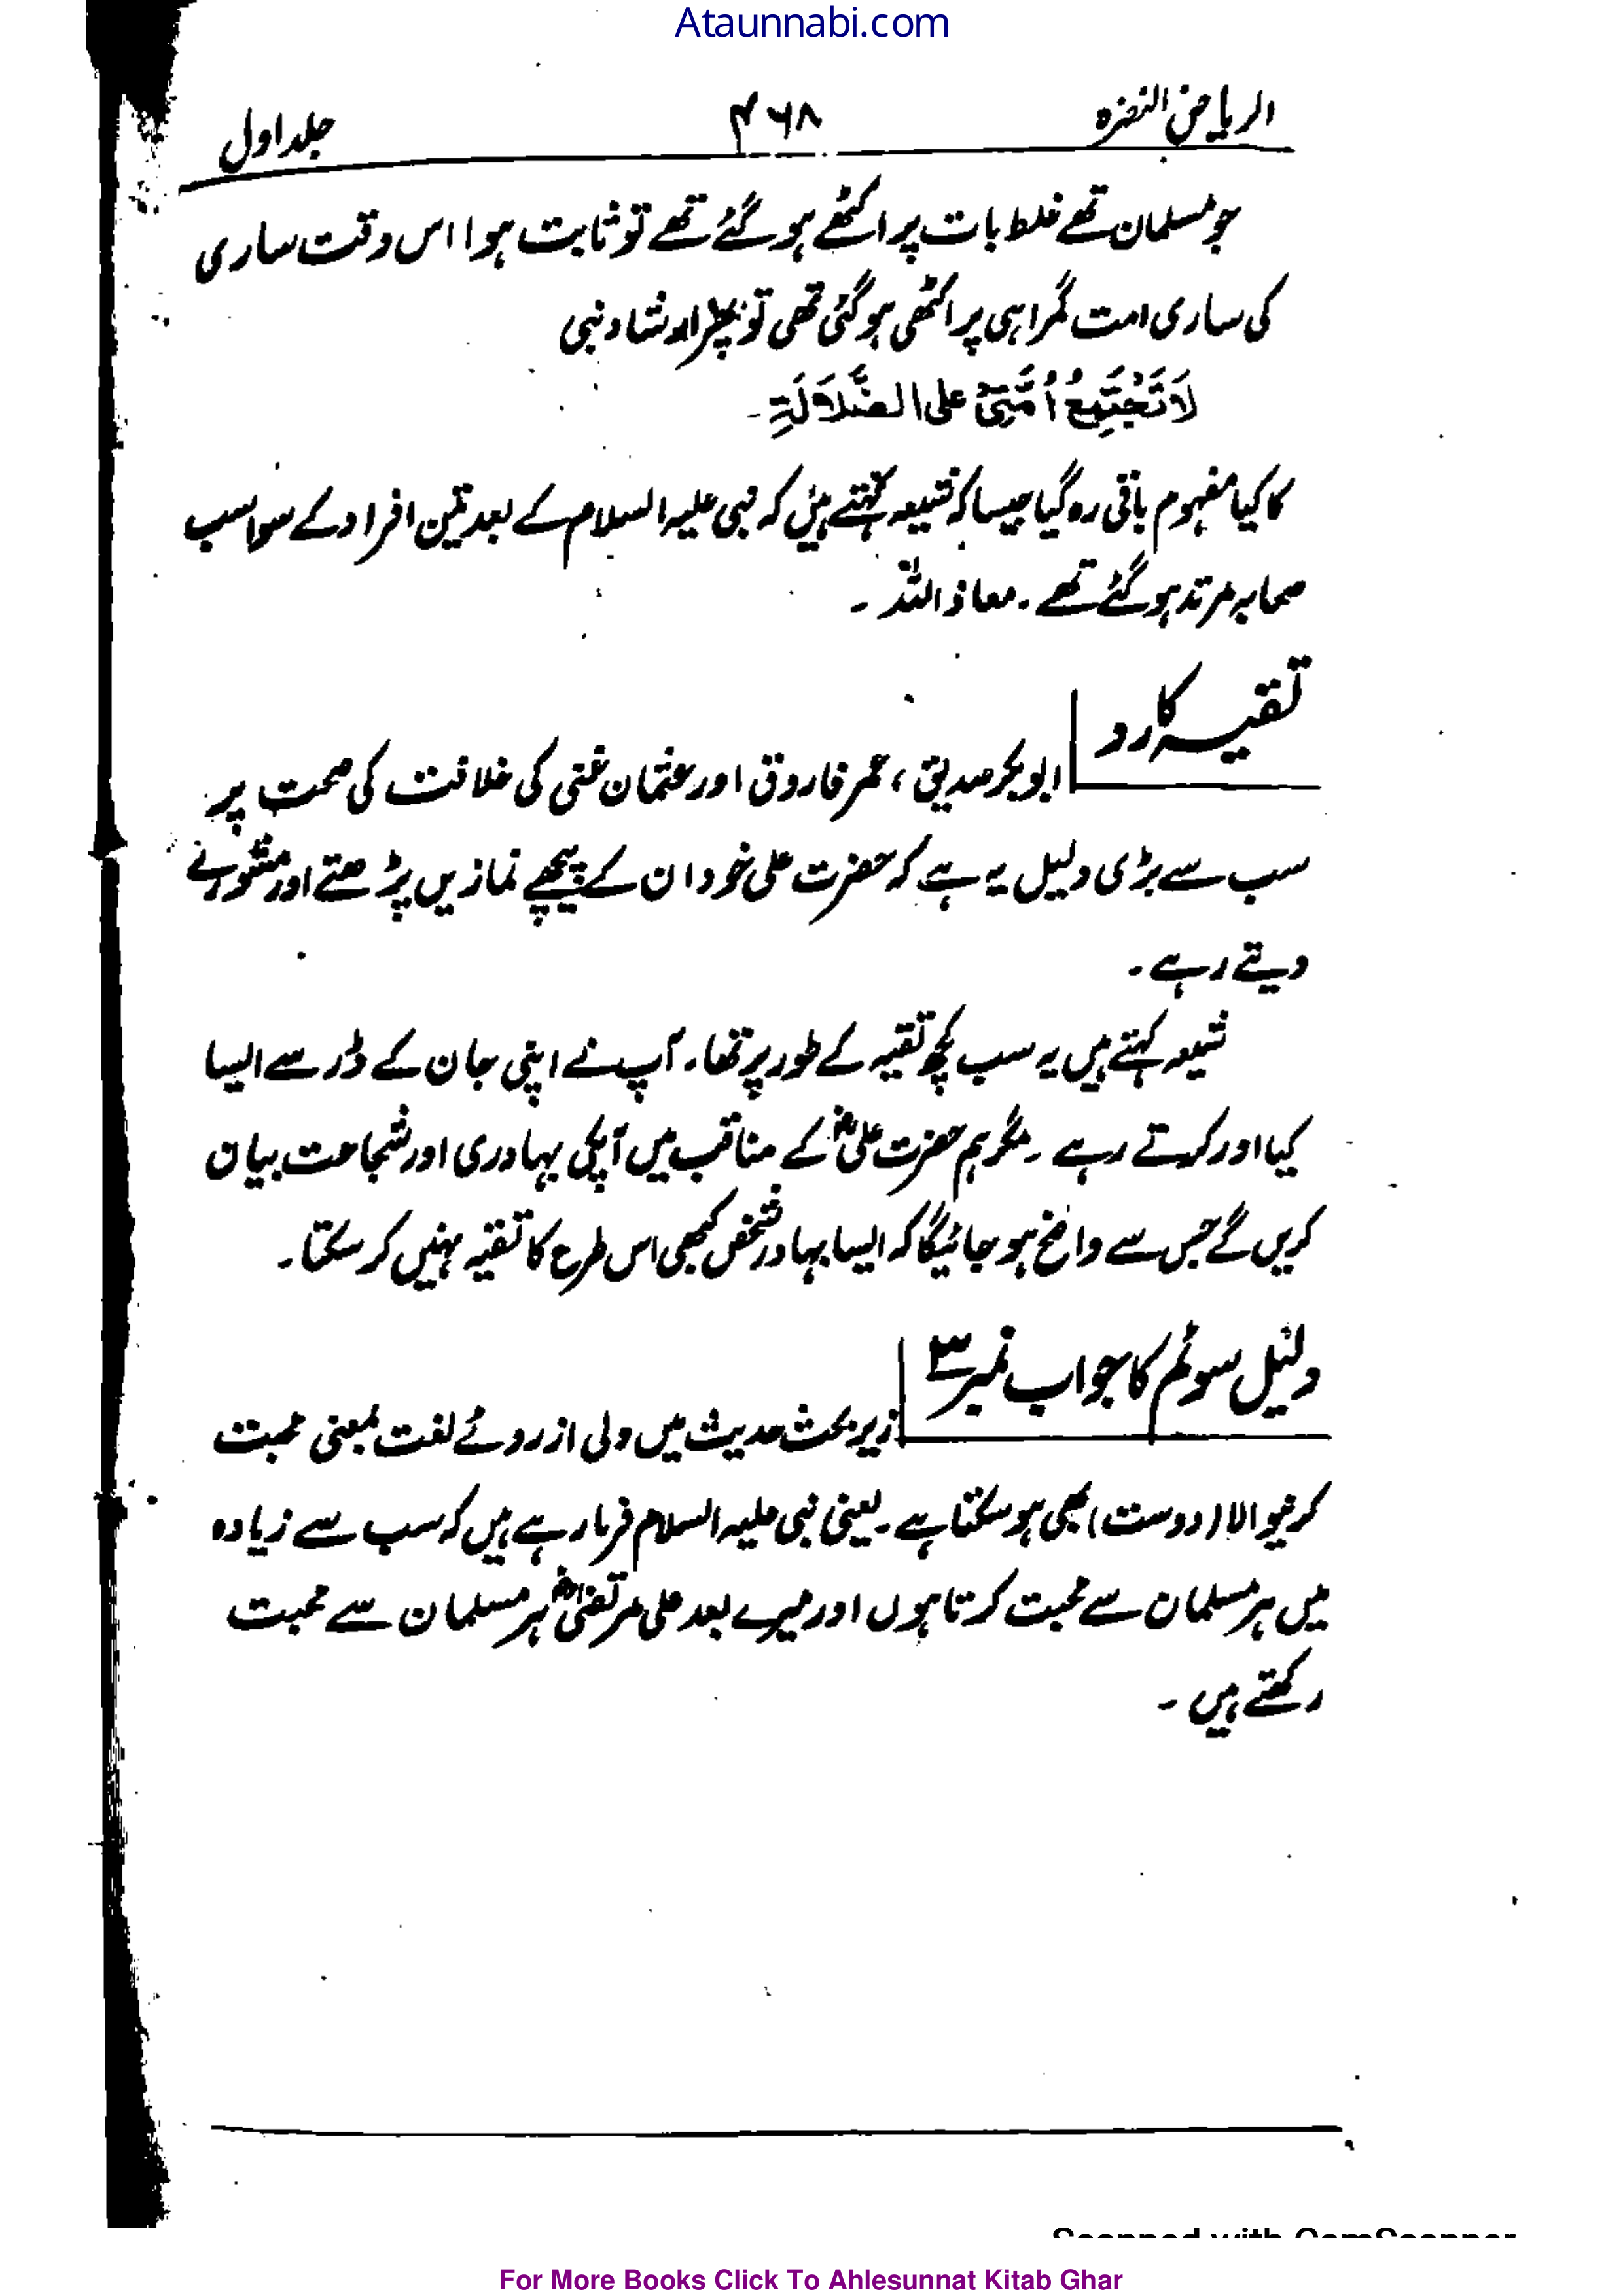 Ataunnabi.com
الریاض النضرہ ۴۶۸ جلد اول
جو مسلمان تھے غلط بات پر اکٹھے ہو گئے تھے تو ثابت ہوا اس وقت ساری
کی ساری امت گمراہی پر اکٹھی ہو گئی تھی تو پھر ارشاد نبی
لَا تَجْتَمِعُ اُمَّتِیْ علی الضَّلَالَةِ۔
کا کیا مفہوم باقی رہ گیا جیسا کہ شیعہ کہتے ہیں کہ نبی علیہ السلام کے بعد تین افراد کے سوا سب
صحابہ مرتد ہو گئے تھے۔ معاذ اللہ۔
تقیہ کا رد
ابوبکر صدیق، عمر فاروق اور عثمان غنی کی خلافت کی صحت پر
سب سے بڑی دلیل یہ ہے کہ حضرت علی خود ان کے پیچھے نمازیں پڑھتے اور مشورے
دیتے رہے۔
شیعہ کہتے ہیں یہ سب کچھ تقیہ کے طور پر تھا۔ آپ نے اپنی جان کے ڈر سے ایسا
کیا اور کرتے رہے۔ مگر ہم حضرت علیؓ کے مناقب میں آپکی بہادری اور شجاعت بیان
کریں گے جس سے واضح ہو جائیگا کہ ایسا بہادر شخص کبھی اس طرح کا تقیہ نہیں کر سکتا۔
دلیل سوئم کا جواب نمبر ۳
زیر بحث حدیث میں ولی از روئے لغت بمعنی محبت
کرنیوالا (دوست) بھی ہو سکتا ہے۔ یعنی نبی علیہ السلام فرما رہے ہیں کہ سب سے زیادہ
میں ہر مسلمان سے محبت کرتا ہوں اور میرے بعد علی مرتضیٰؓ ہر مسلمان سے محبت
رکھتے ہیں۔
Scanned with CamScanner
For More Books Click To Ahlesunnat Kitab Ghar